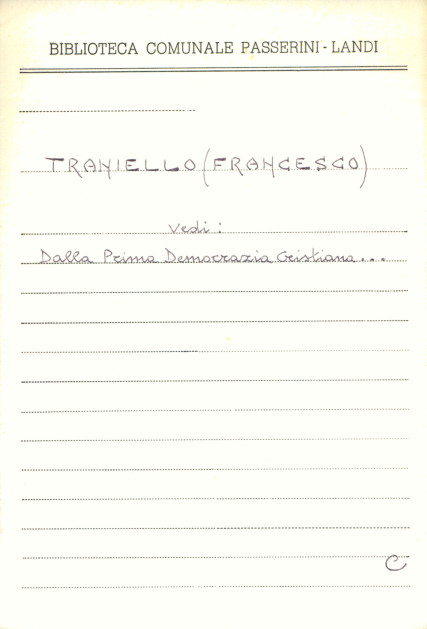 BIBLIOTECA COMUNALE PASSERINI - LANDI
TRANIELLO (FRANCESCO)
Vedi :
Dalla Prima Democrazia Cristiana...
C